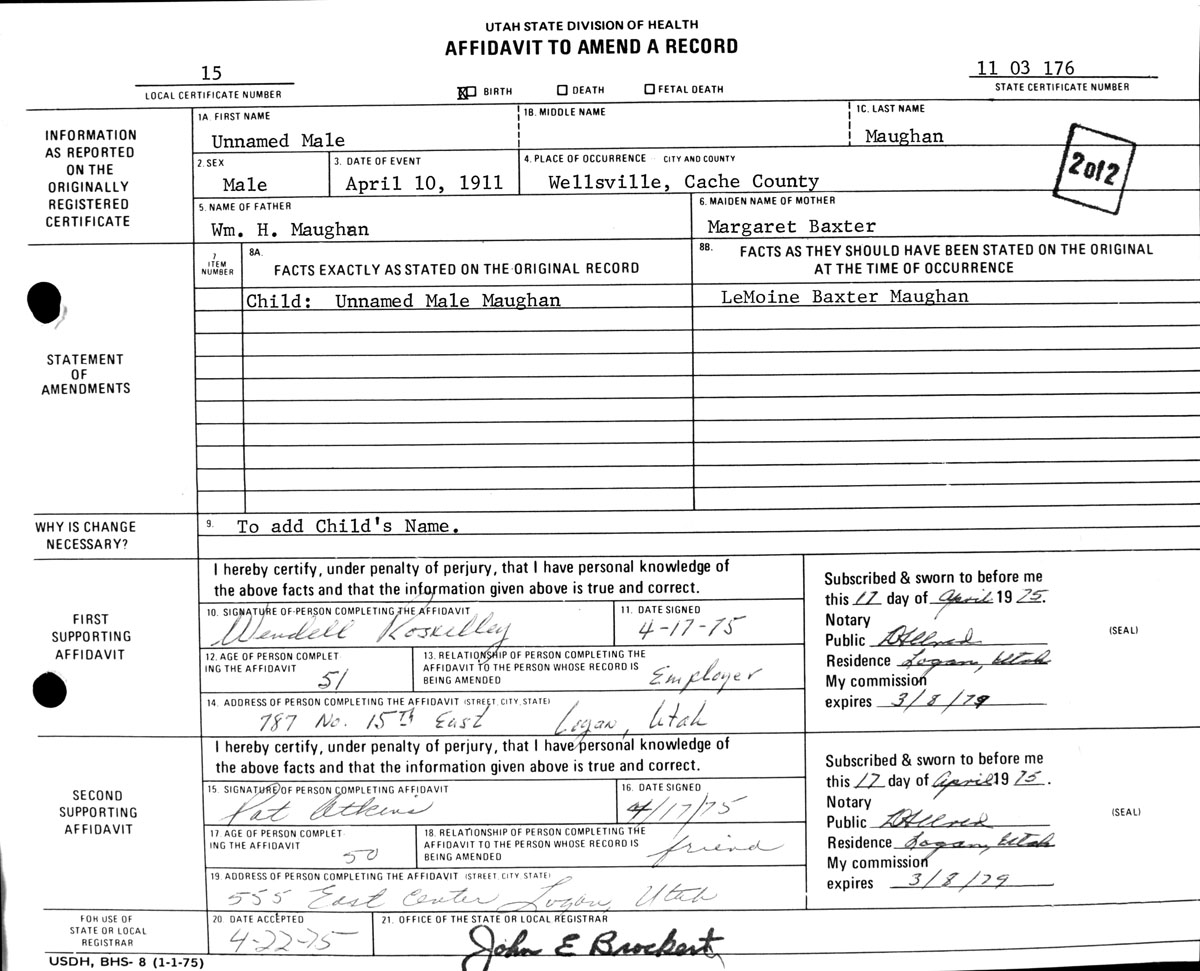 UTAH STATE DIVISION OF HEALTH
AFFIDAVIT TO AMEND A RECORD
15
LOCAL CERTIFICATE NUMBER
BIRTH
DEATH
FETAL DEATH
11 03 176
STATE CERTIFICATE NUMBER
INFORMATION
AS REPORTED
ON THE
ORIGINALLY
REGISTERED
CERTIFICATE
1A. FIRST NAME
Unnamed Male
1B. MIDDLE NAME
1C. LAST NAME
Maughan
2. SEX
Male
3. DATE OF EVENT
April 10, 1911
4. PLACE OF OCCURRENCE CITY AND COUNTY
Wellsville, Cache County
2 of 2
5. NAME OF FATHER
Wm. H. Maughan
6. MAIDEN NAME OF MOTHER
Margaret Baxter
STATEMENT
OF
AMENDMENTS
7
ITEM
NUMBER
8A.
FACTS EXACTLY AS STATED ON THE ORIGINAL RECORD
8B. FACTS AS THEY SHOULD HAVE BEEN STATED ON THE ORIGINAL
AT THE TIME OF OCCURRENCE
Child: Unnamed Male Maughan
LeMoine Baxter Maughan
WHY IS CHANGE
NECESSARY?
9. To add Child's Name.
FIRST
SUPPORTING
AFFIDAVIT
I hereby certify, under penalty of perjury, that I have personal knowledge of
the above facts and that the information given above is true and correct.
10. SIGNATURE OF PERSON COMPLETING THE AFFIDAVIT
Wendell Roskelley
11. DATE SIGNED
4-17-75
12. AGE OF PERSON COMPLET
ING THE AFFIDAVIT
51
13. RELATIONSHIP OF PERSON COMPLETING THE
AFFIDAVIT TO THE PERSON WHOSE RECORD IS
BEING AMENDED
Employer
14. ADDRESS OF PERSON COMPLETING THE AFFIDAVIT (STREET, CITY, STATE)
787 No. 15th East Logan, Utah
Subscribed & sworn to before me
this 17 day of April 1975.
Notary
Public DAllred
Residence Logan, Utah
My commission
expires 3/8/79
(SEAL)
SECOND
SUPPORTING
AFFIDAVIT
I hereby certify, under penalty of perjury, that I have personal knowledge of
the above facts and that the information given above is true and correct.
15. SIGNATURE OF PERSON COMPLETING AFFIDAVIT
Pat Atkins
16. DATE SIGNED
4/17/75
17. AGE OF PERSON COMPLET
ING THE AFFIDAVIT
50
18. RELATIONSHIP OF PERSON COMPLETING THE
AFFIDAVIT TO THE PERSON WHOSE RECORD IS
BEING AMENDED
friend
19. ADDRESS OF PERSON COMPLETING THE AFFIDAVIT (STREET, CITY, STATE)
555 East Center Logan, Utah
Subscribed & sworn to before me
this 17 day of April 1975.
Notary
Public DAllred
Residence Logan, Utah
My commission
expires 3/8/79
(SEAL)
FOR USE OF
STATE OR LOCAL
REGISTRAR
20. DATE ACCEPTED
4-22-75
21. OFFICE OF THE STATE OR LOCAL REGISTRAR
John E Brockert
USDH, BHS- 8 (1-1-75)